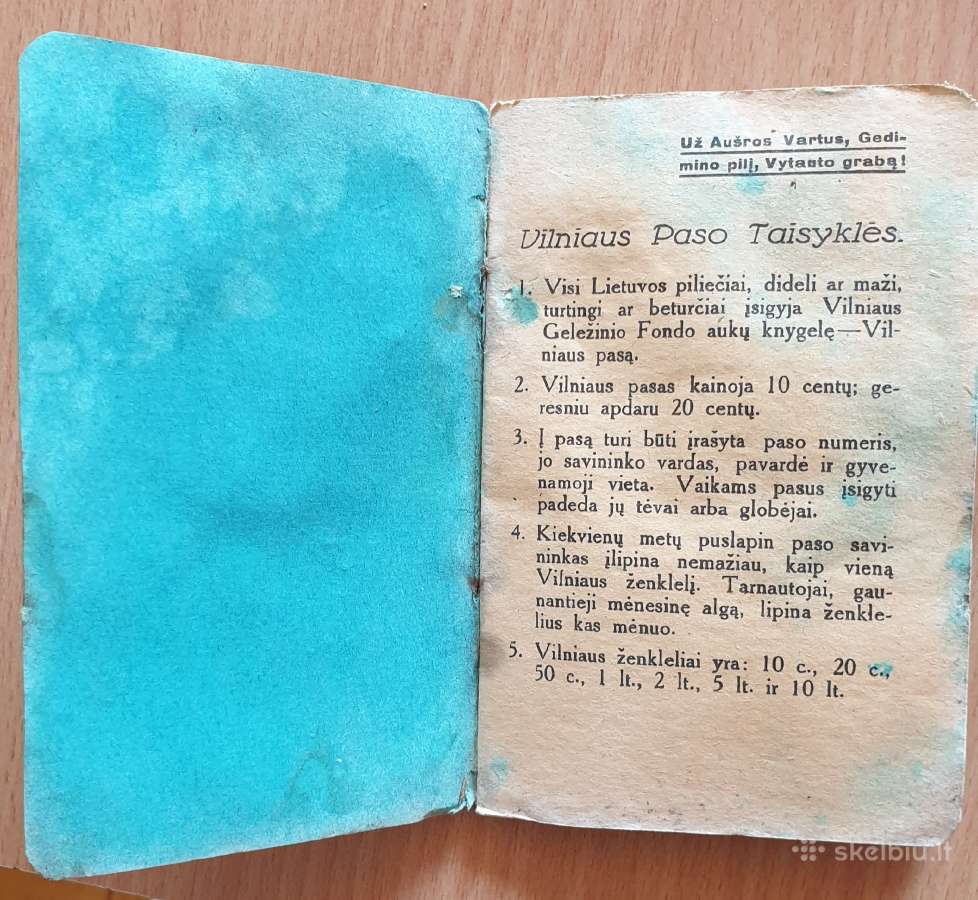 Už Aušros Vartus, Gedi-
mino pilį, Vytauto grabą!
Vilniaus Paso Taisyklės.
1. Visi Lietuvos piliečiai, dideli ar maži,
turtingi ar beturčiai įsigyja Vilniaus
Geležinio Fondo aukų knygelę—Vil-
niaus pasą.
2. Vilniaus pasas kainoja 10 centų; ge-
resniu apdaru 20 centų.
3. Į pasą turi būti įrašyta paso numeris,
jo savininko vardas, pavardė ir gyve-
namoji vieta. Vaikams pasus įsigyti
padeda jų tėvai arba globėjai.
4. Kiekvienų metų puslapin paso savi-
ninkas įlipina nemažiau, kaip vieną
Vilniaus ženklelį. Tarnautojai, gau-
nantieji mėnesinę algą, lipina ženkle-
lius kas mėnuo.
5. Vilniaus ženkleliai yra: 10 c., 20 c.,
50 c., 1 lt., 2 lt., 5 lt. ir 10 lt.
skelbiu.lt